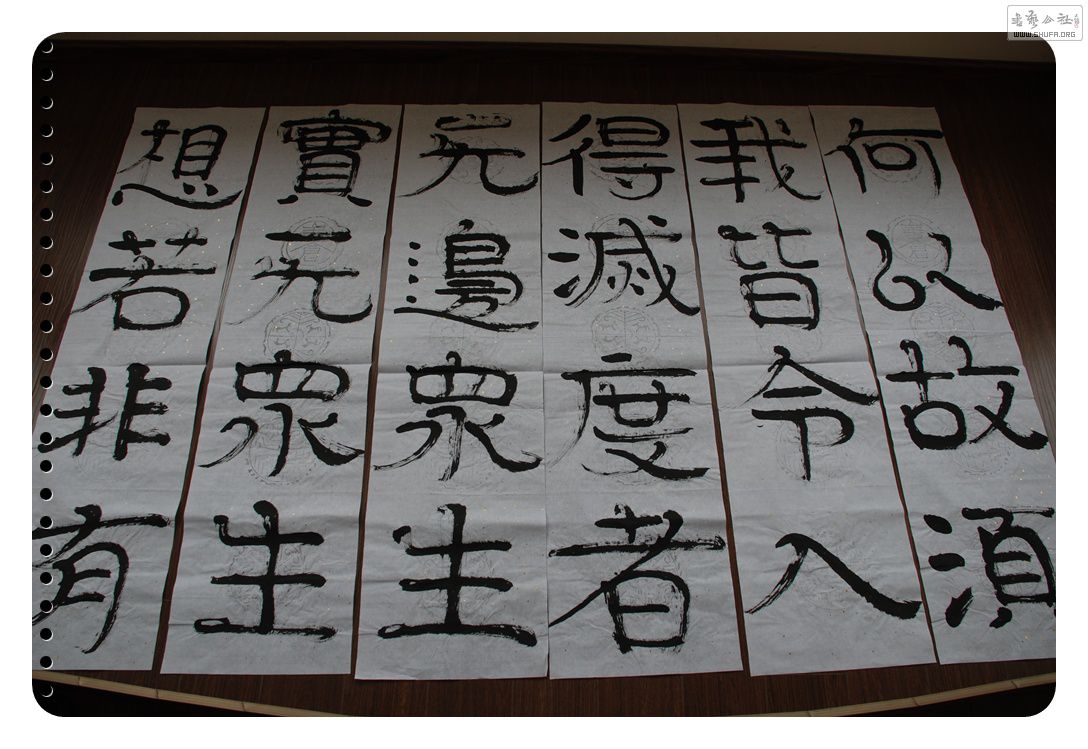 何以故須
我皆令入
得滅度者
无邊眾生
實无眾生
想若非有
書藝公社
WWW.SHUFA.ORG